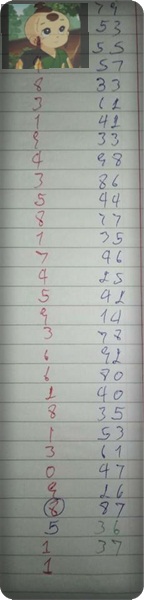 79
53
55
57
8 33
3 61
1 42
9 33
4 98
3 86
5 44
8 77
1 35
7 46
4 25
5 92
9 14
3 78
6 92
6 80
1 40
8 35
1 53
3 61
0 47
9 26
8 87
5 36
1 37
1